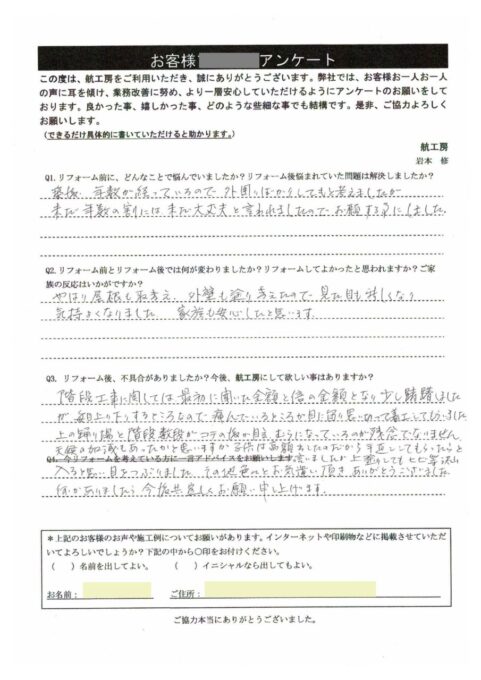 お客様 アンケート
この度は、航工房をご利用いただき、誠にありがとうございます。弊社では、お客様お一人お一人
の声に耳を傾け、業務改善に努め、より一層安心していただけるようにアンケートのお願いをして
おります。良かった事、嬉しかった事、どのような些細な事でも結構です。是非、ご協力よろしく
お願いします。
(できるだけ具体的に書いていただけると助かります。)
航工房
岩本 修
Q1. リフォーム前に、どんなことで悩んでいましたか？リフォーム後悩まれていた問題は解決しましたか？
築後 年数が経っているので 外回りばかりしてもと考えましたが
まだ 年数の割には まだ大丈夫と言われましたので お願する事にしました。
Q2. リフォーム前とリフォーム後では何が変わりましたか？リフォームしてよかったと思われますか？ご家
族の反応はいかがですか？
やはり屋根も 外壁も塗り考えたので 見た目も新しくなり
気持よくなりました 家族も安心したと思います
Q3. リフォーム後、不具合がありましたか？今後、航工房にして欲しい事はありますか？
階段工事に関しては 最初に聞いた金額と倍の金額となり少し躊躇しました
が 毎日上り下りするところなので 痛んでいるところが目に 思い切って着工してもらいました
上の踊り場と階段数段がコテの後が目え むらになっているのが残念でなりません
天候の加減もあったかと思いますが 高額出したのだから手直ししてもらったらと
Q4. 今リフォームを考えている方に一言アドバイスをお願いします。
言いましたが 上塗りしても ヒビ等
入ると思い目をつぶりました その他色々とお気遣い頂き ありがとうございました
何かありましたら 今後共宜しくお願い申し上げます。
＊上記のお客様のお声や施工例についてお願いがあります。インターネットや印刷物などに掲載させていただ
いてよろしいでしょうか？下記の中から〇印をお付けください。
（ ）名前を出してよい。 （ ）イニシャルなら出してもよい。
お名前： ご住所：
ご協力本当にありがとうございました。